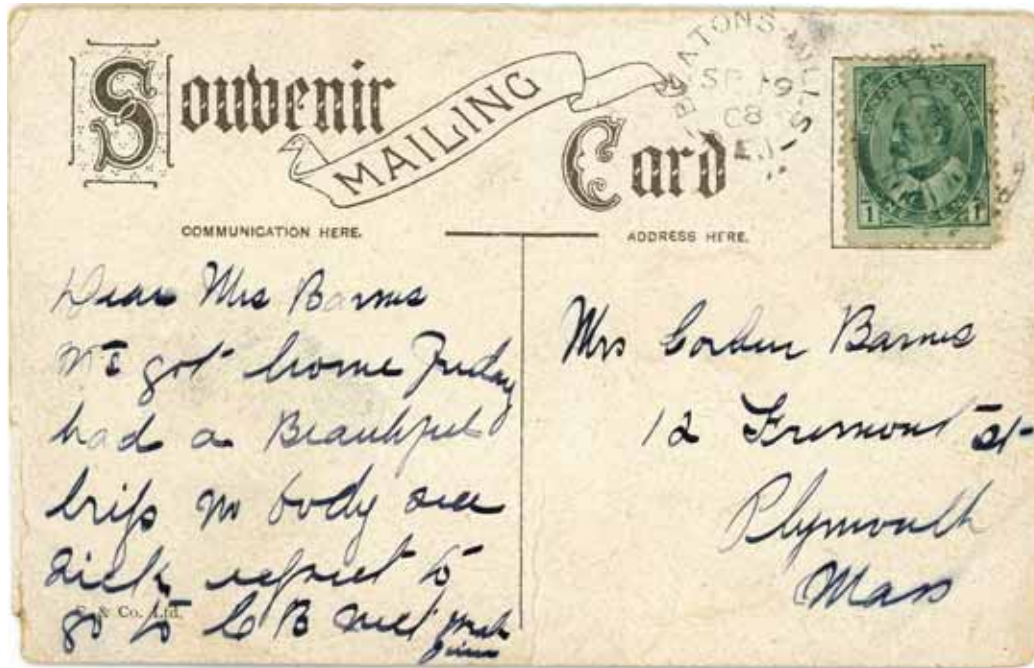 Souvenir
MAILING
Card
BEATONS MILLS
SP 19
08
COMMUNICATION HERE.
ADDRESS HERE.
1 1
Dear Mrs Barnes
We got home Friday
had a Beautiful
trip no body sea
sick expect to
go to C B next
Mrs Gordon Barnes
12 Fremont St
Plymouth
Mass
& Co. Ltd.